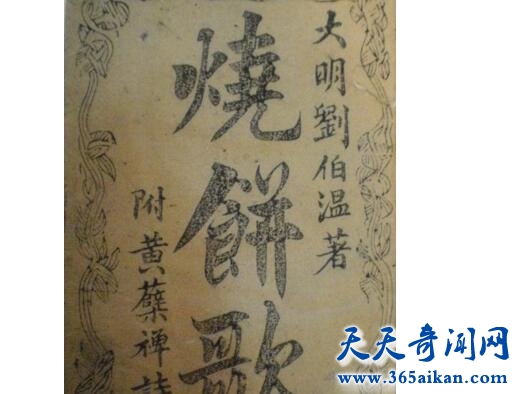 大明劉伯温著
燒餅歌
附黃蘗禪詩
天天奇闻网
www.365aikan.com